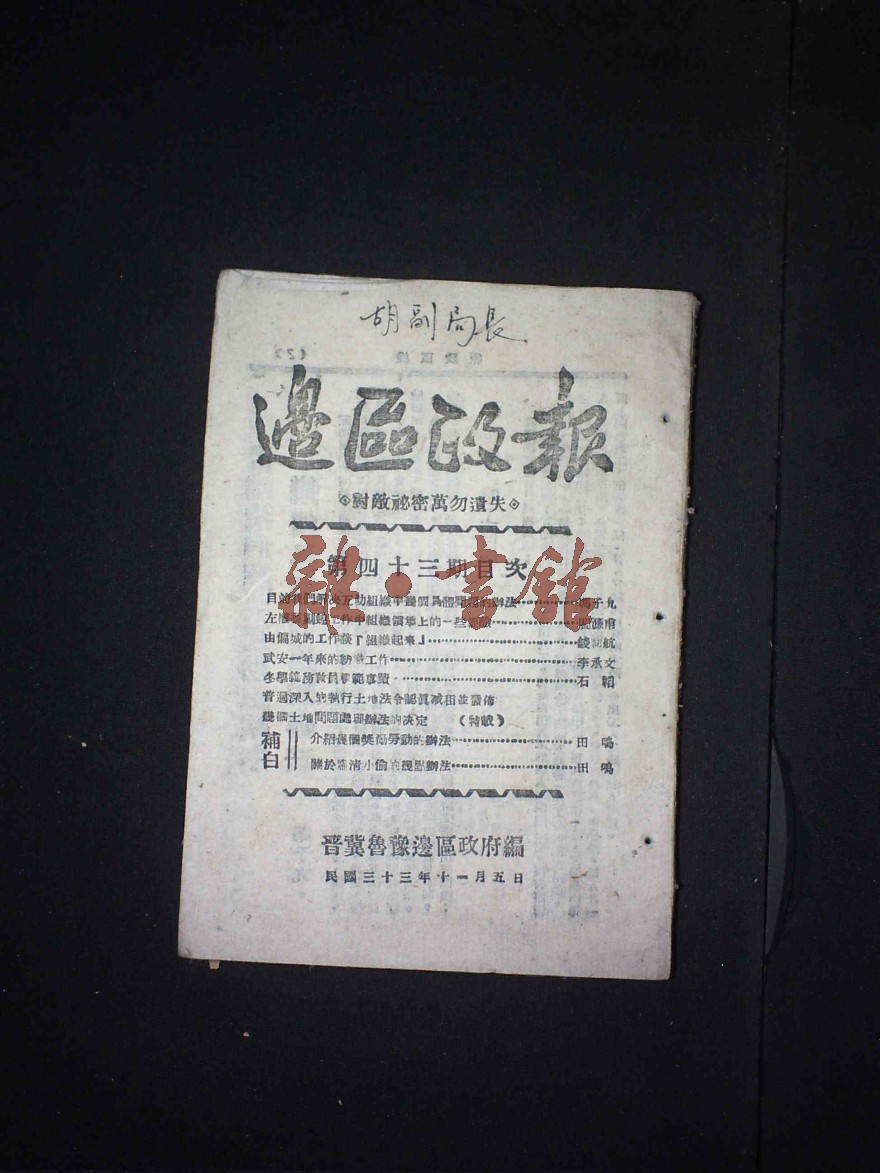 胡副局長
邊區政報
對敵祕密萬勿遺失
第四十三期目次
目前我們解決互助組織中幾個具體問題的辦法
工作中組織領導上的一些
由偏城的工作談「組織起來」
武安一年來的紡織工作 李承文
冬學義務教員模範事蹟 石韜
普遍深入的執行土地法令認眞减租並發佈
幾個土地問題處理辦法的决定 (特載)
補白
介紹幾個獎勵勞動的辦法 田鳴
關於肅清小偷的幾點辦法 田鳴
晋冀魯豫邊區政府編
民國三十三年十一月五日
雜·書館